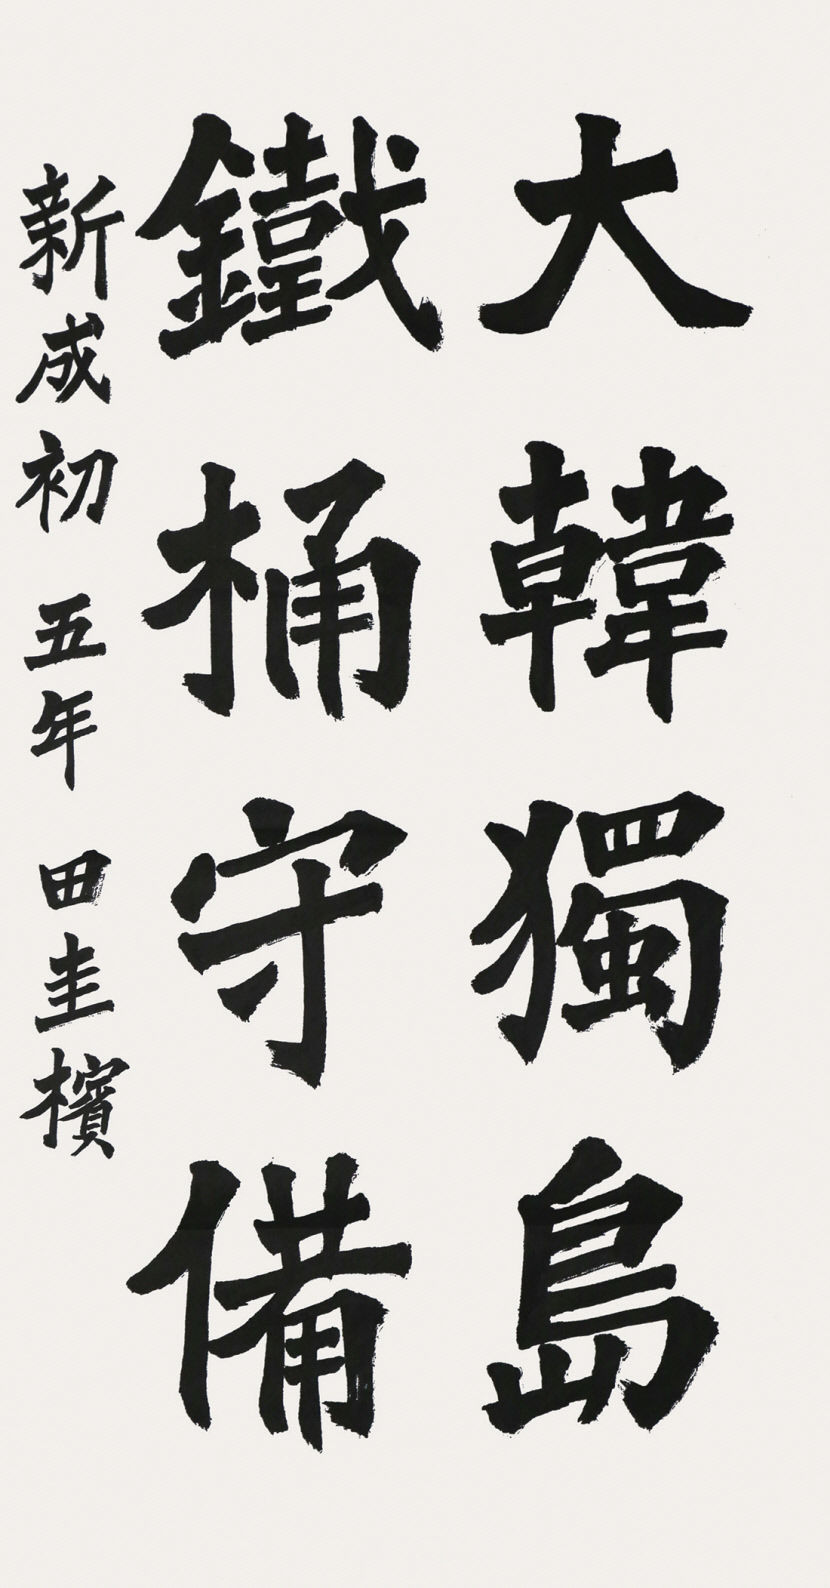 大韓獨島
鐵桶守備
新成初 五年 田圭檳